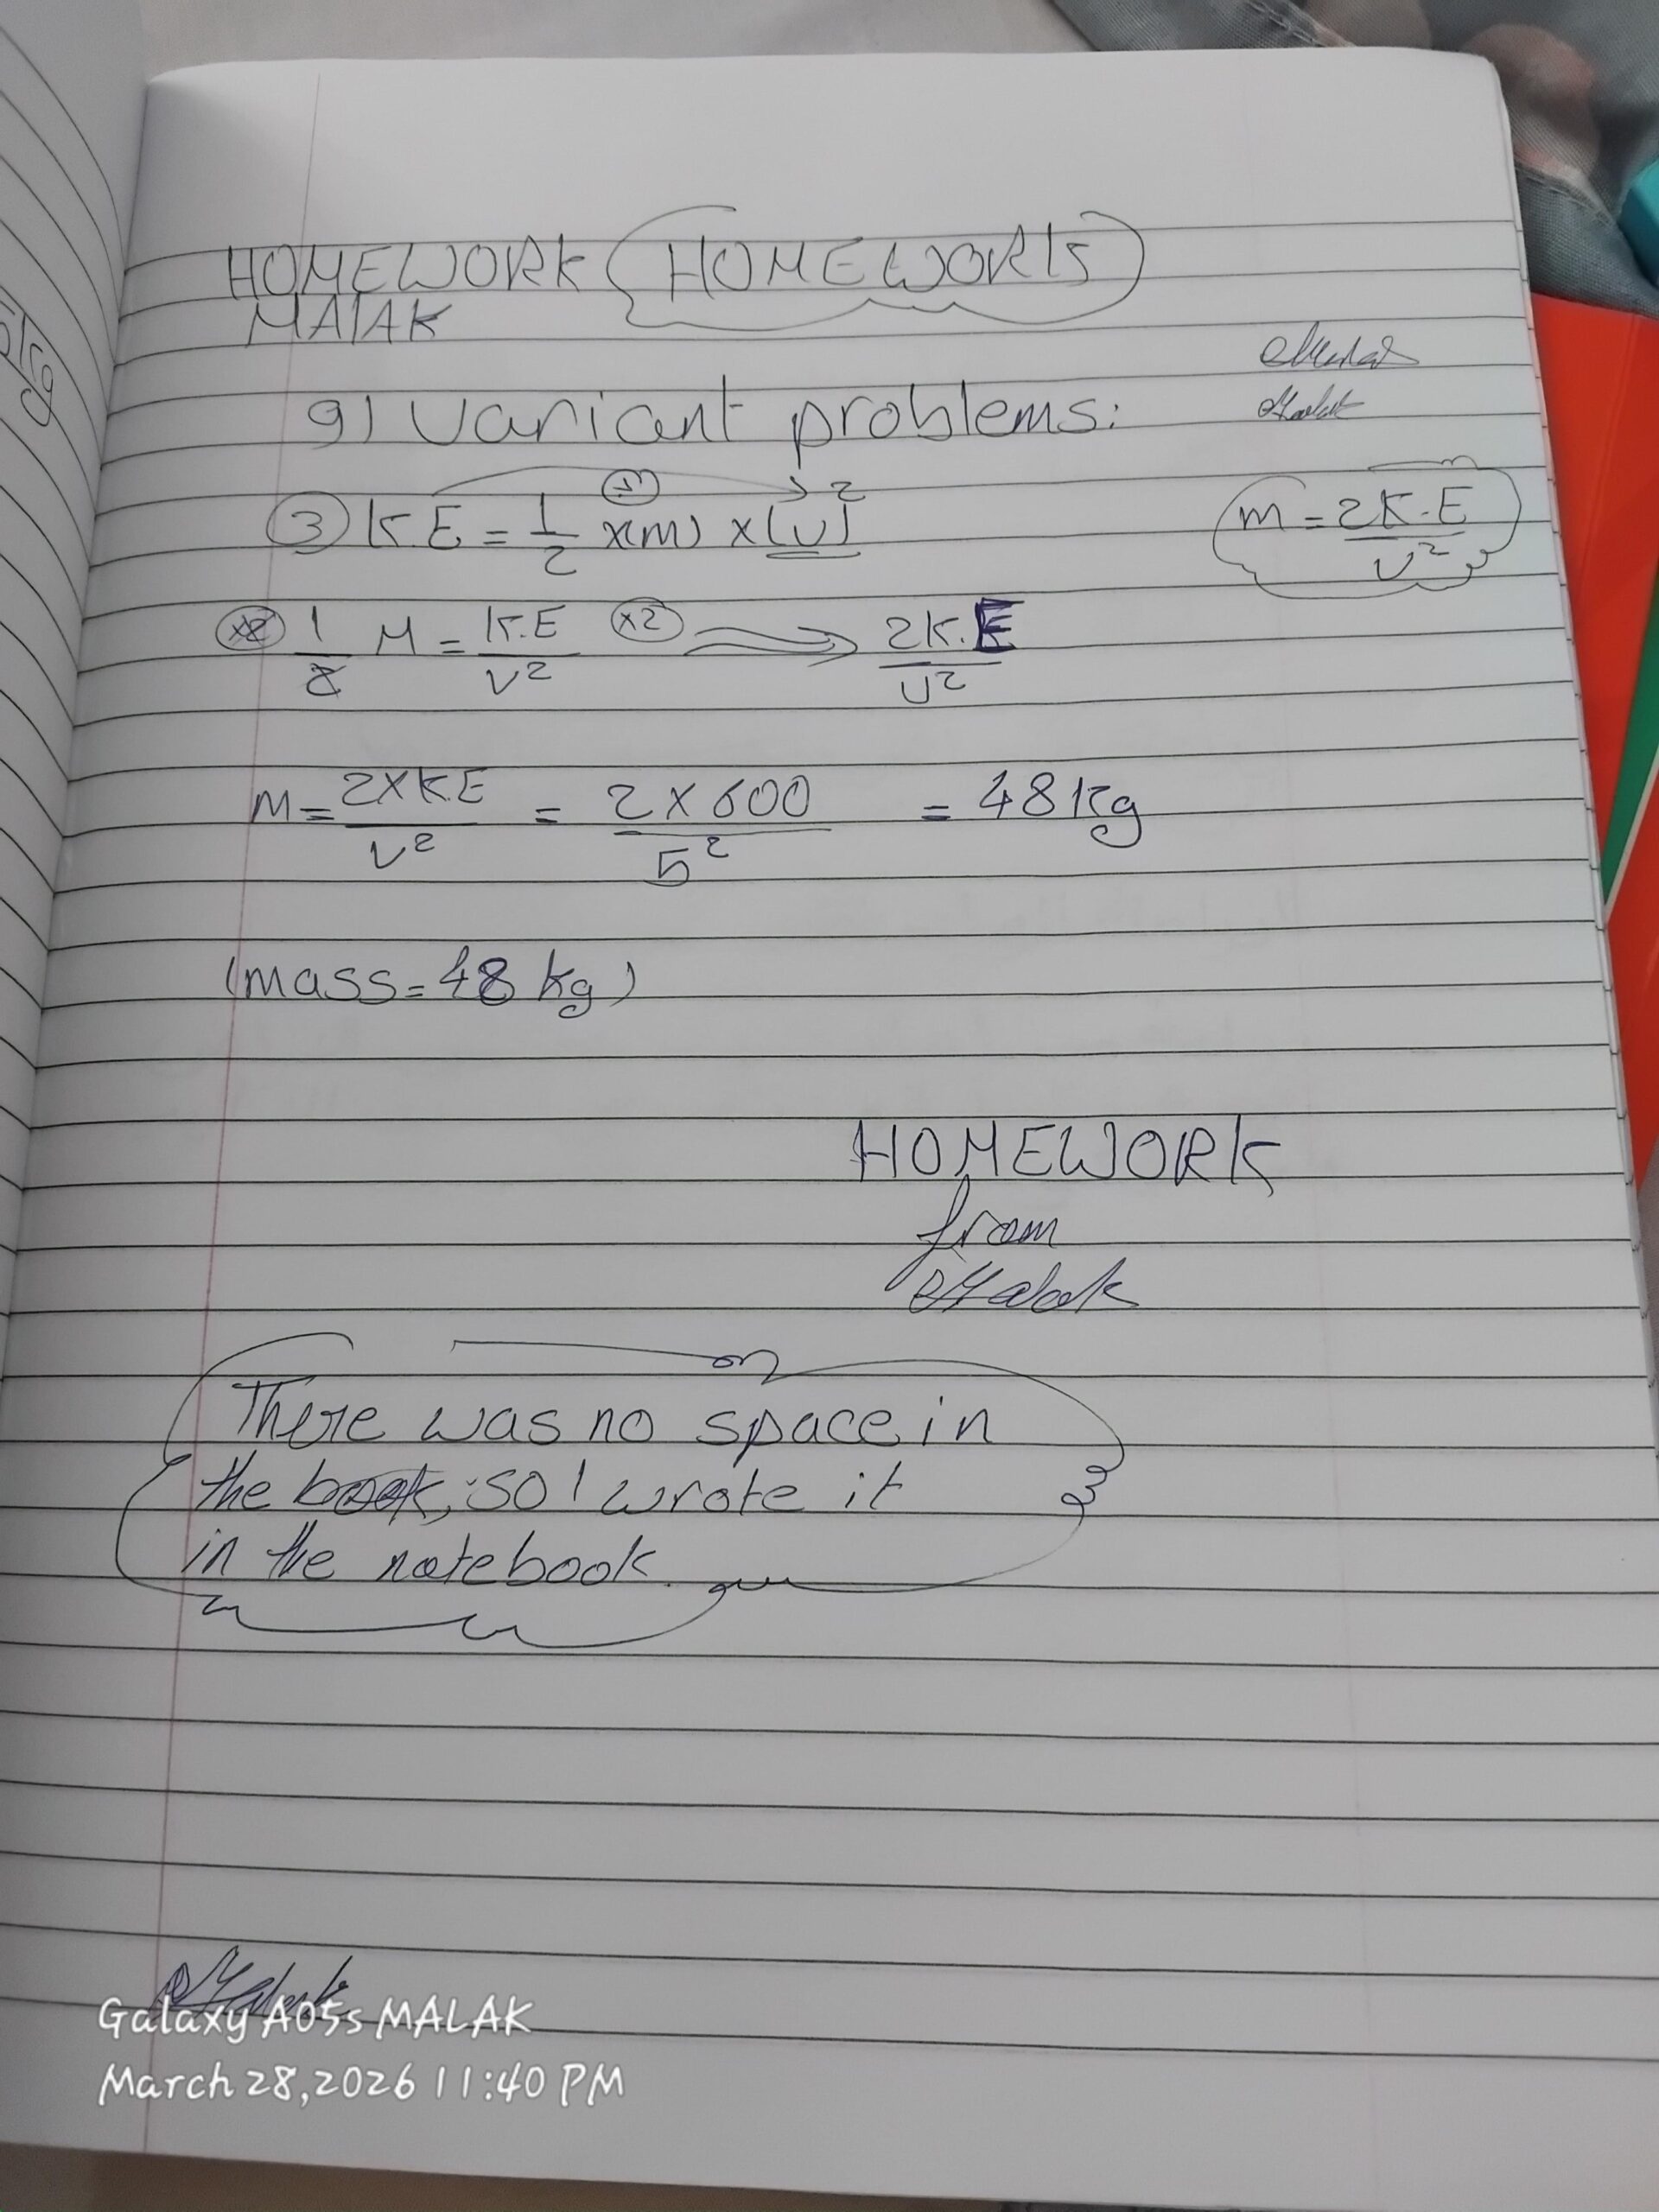 HOMEWORK (HOMEWORK)
MALAK
Malak
Malak
9) Variant problems:
③ K.E = 1/2 x(m) x(v)²
m = 2K.E/v²
×2 1/2 M = K.E/v² ×2 ⟹ 2K.E/v²
M = 2×K.E/v² = 2×600/5² = 48 kg
(mass = 48 kg)
HOMEWORK
from
Malak
There was no space in
the book, so I wrote it
in the notebook.
Malak
Galaxy A05s MALAK
March 28, 2026 11:40 PM
5kg